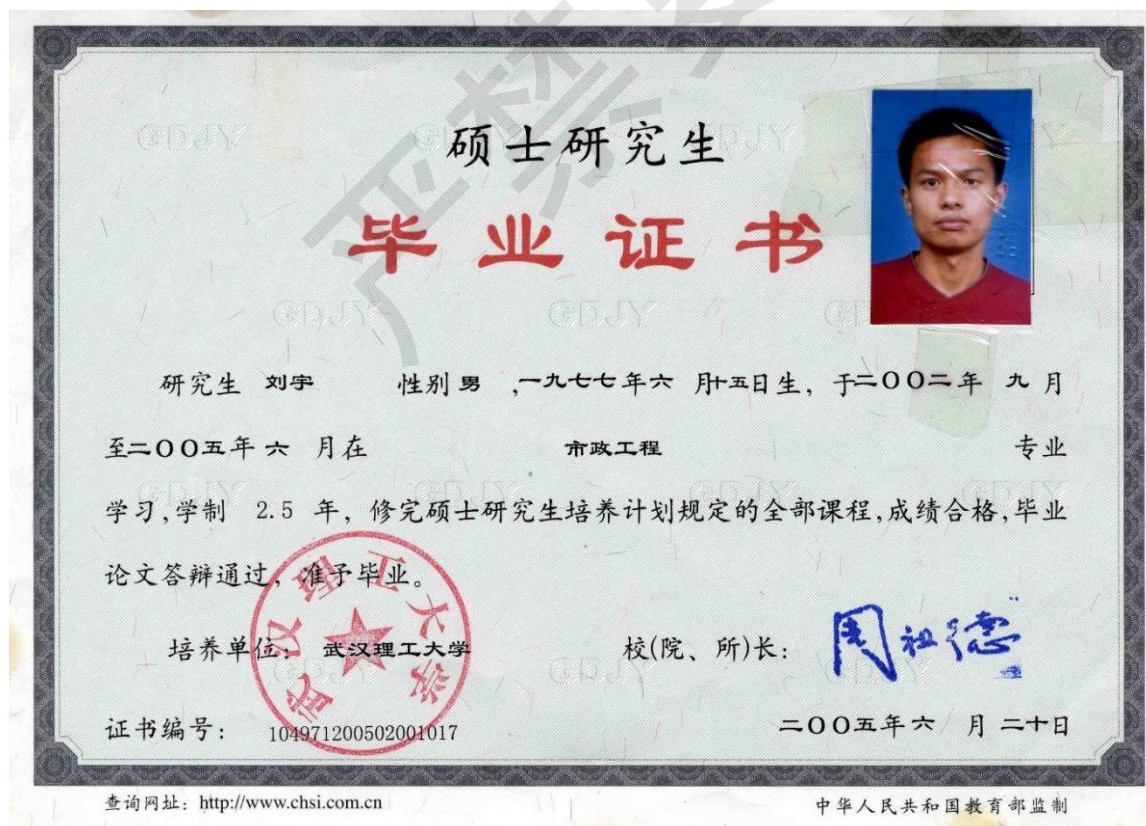 硕士研究生
毕业证书
研究生 刘宇 性别 男 ,一九七七年六 月十五日生, 于二00二年 九 月
至二00五年 六 月在 市政工程 专业
学习,学制 2.5 年, 修完硕士研究生培养计划规定的全部课程,成绩合格,毕业
论文答辩通过, 准予毕业。
武汉理工大学
培养单位: 武汉理工大学 校(院、所)长: 周祖德
证书编号: 104971200502001017 二00五年 六 月 二十日
查询网址: http://www.chsi.com.cn 中华人民共和国教育部监制
严禁